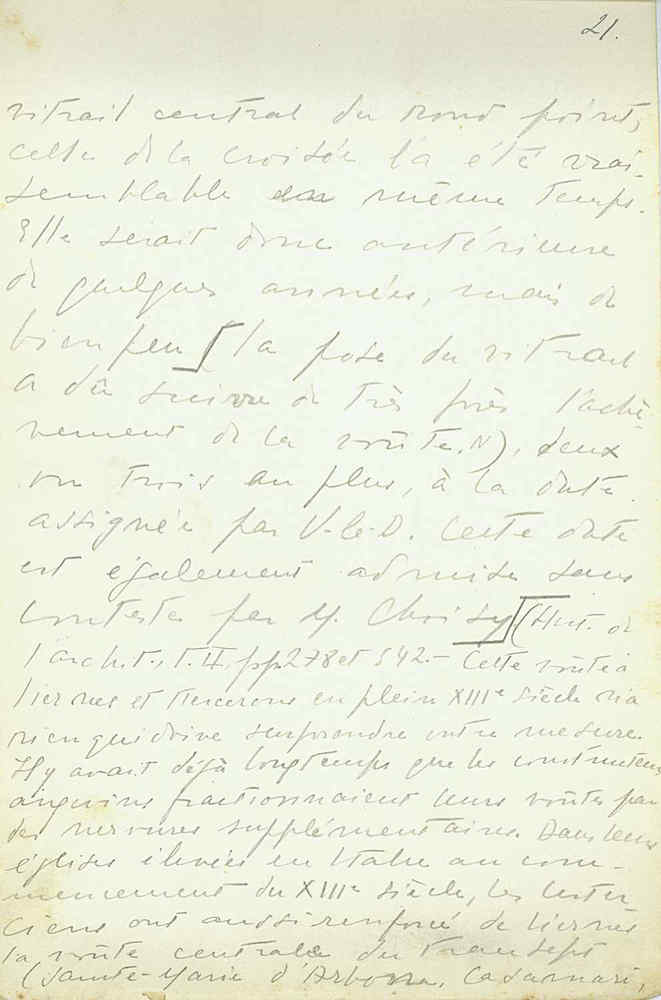 21.
vitrail central du rond point,
celle de la croisée l'a été vrai-
semblable en même temps.
Elle serait donc antérieure
de quelques années, mais de
bien peu [(la pose du vitrail
a dû suivre de très près l'achè-
vement de la voûte. N), deux
ou trois au plus, à la date
assignée par V-le-D. Cette date
est également admise sans
conteste par M. Choisy] (Hist. de
l'archit., t. II, pp. 278 et 542.- Cette voûte à
liernes et tiercerons en plein XIIIe siècle n'a
rien qui doive surprendre outre mesure.
Il y avait déjà longtemps que les constructeurs
angevins fractionnaient leurs voûtes par
des nervures supplémentaires. Dans leurs
églises élevées en Italie au com-
mencement du XIIIe siècle, les Cister
ciens ont aussi renforcé de liernes
la voûte centrale du transept
(Sainte-Marie d'Arbona, Casamari,